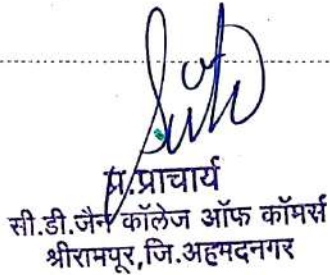 प्र.प्राचार्य
सी.डी.जैन कॉलेज ऑफ कॉमर्स
श्रीरामपूर,जि.अहमदनगर